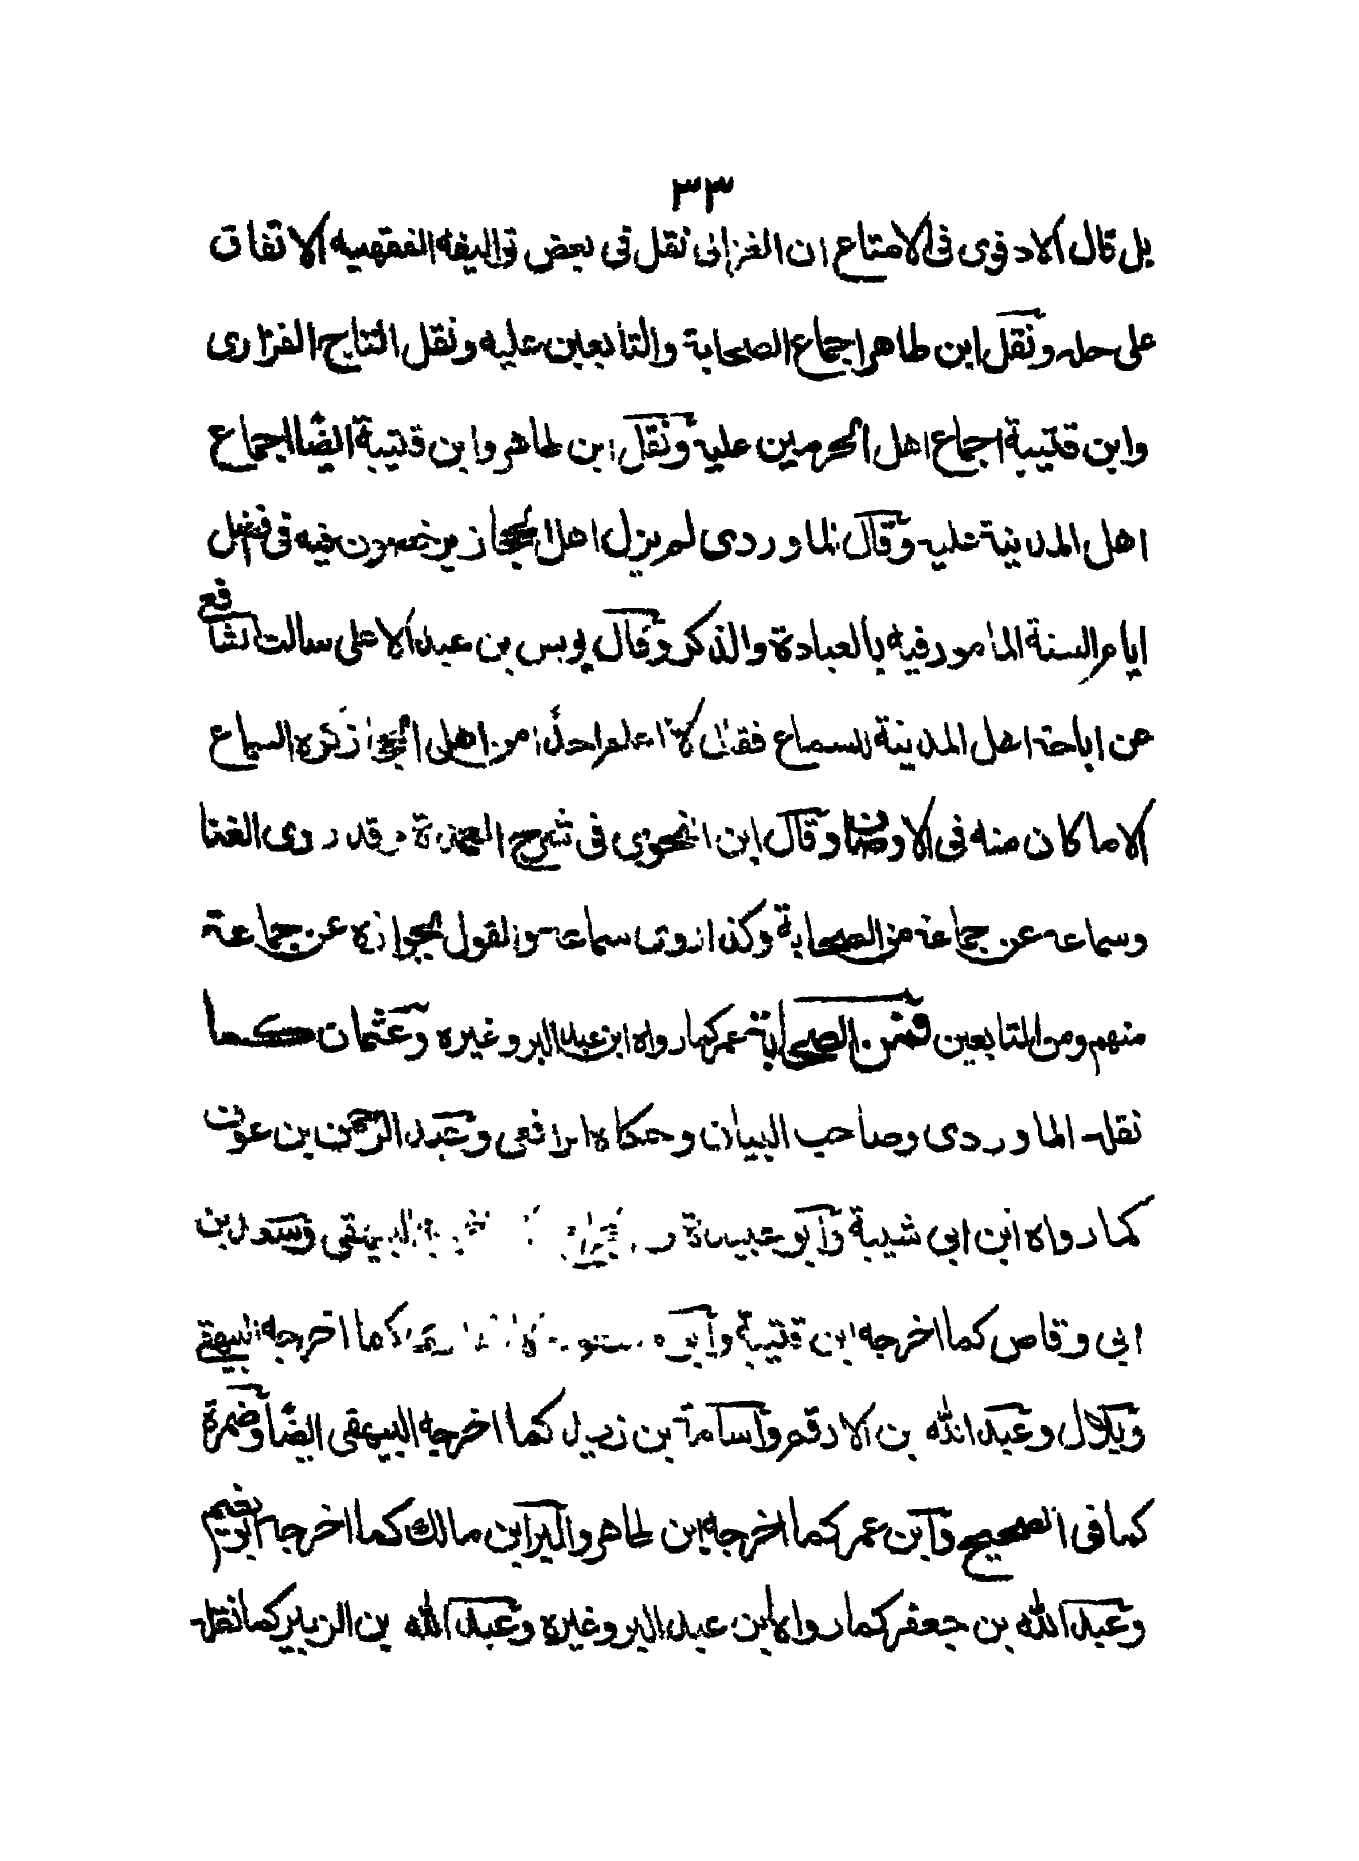 ٣٣
بل قال الادفوى فى الامتاع ان الغزالى نقل فى بعض تواليفه الفقهيه الاتفاق
على حله ونقل ابن طاهر اجماع الصحابة والتابعين عليه ونقل التاج الفزارى
وابن قتيبة اجماع اهل الحرمين عليه ونقل ابن طاهر وابن قتيبة ايضًا اجماع
اهل المدينة عليه وقال الماوردى لم يزل اهل الحجاز يرخصون فيه فى افضل
ايام السنة المامور فيه بالعبادة والذكر وقال يونس بن عبد الاعلى سالت الشافعى
عن اباحة اهل المدينة للسماع فقال لا اعلم احدًا من اهل الحجاز كره السماع
الا ما كان منه فى الاوصاف وقال ابن النحوى فى شرح العمدة وقد روى الغنا
وسماعه عن جماعة من الصحابة وكذا روى سماعه والقول بجوازه عن جماعة
منهم ومن التابعين فمن الصحابة عمر كما رواه ابن عبد البر وغيره وعثمان كما
نقله الماوردى وصاحب البيان وحكاه الرافعى وعبد الرحمن بن عوف
كما رواه ابن ابى شيبة وابو عبيدة البيهقى وسعد بن
ابى وقاص كما اخرجه ابن قتيبة وابو كما اخرجه البيهقى
وبلال وعبد الله بن الارقم واسامة بن زيد كما اخرجه البيهقى ايضًا وضمرة
كما فى الصحيح وابن عمر كما اخرجه ابن طاهر والبرا بن مالك كما اخرجه ابو نعيم
وعبد الله بن جعفر كما رواه ابن عبد البر وغيره وعبد الله بن الزبير كما نقله